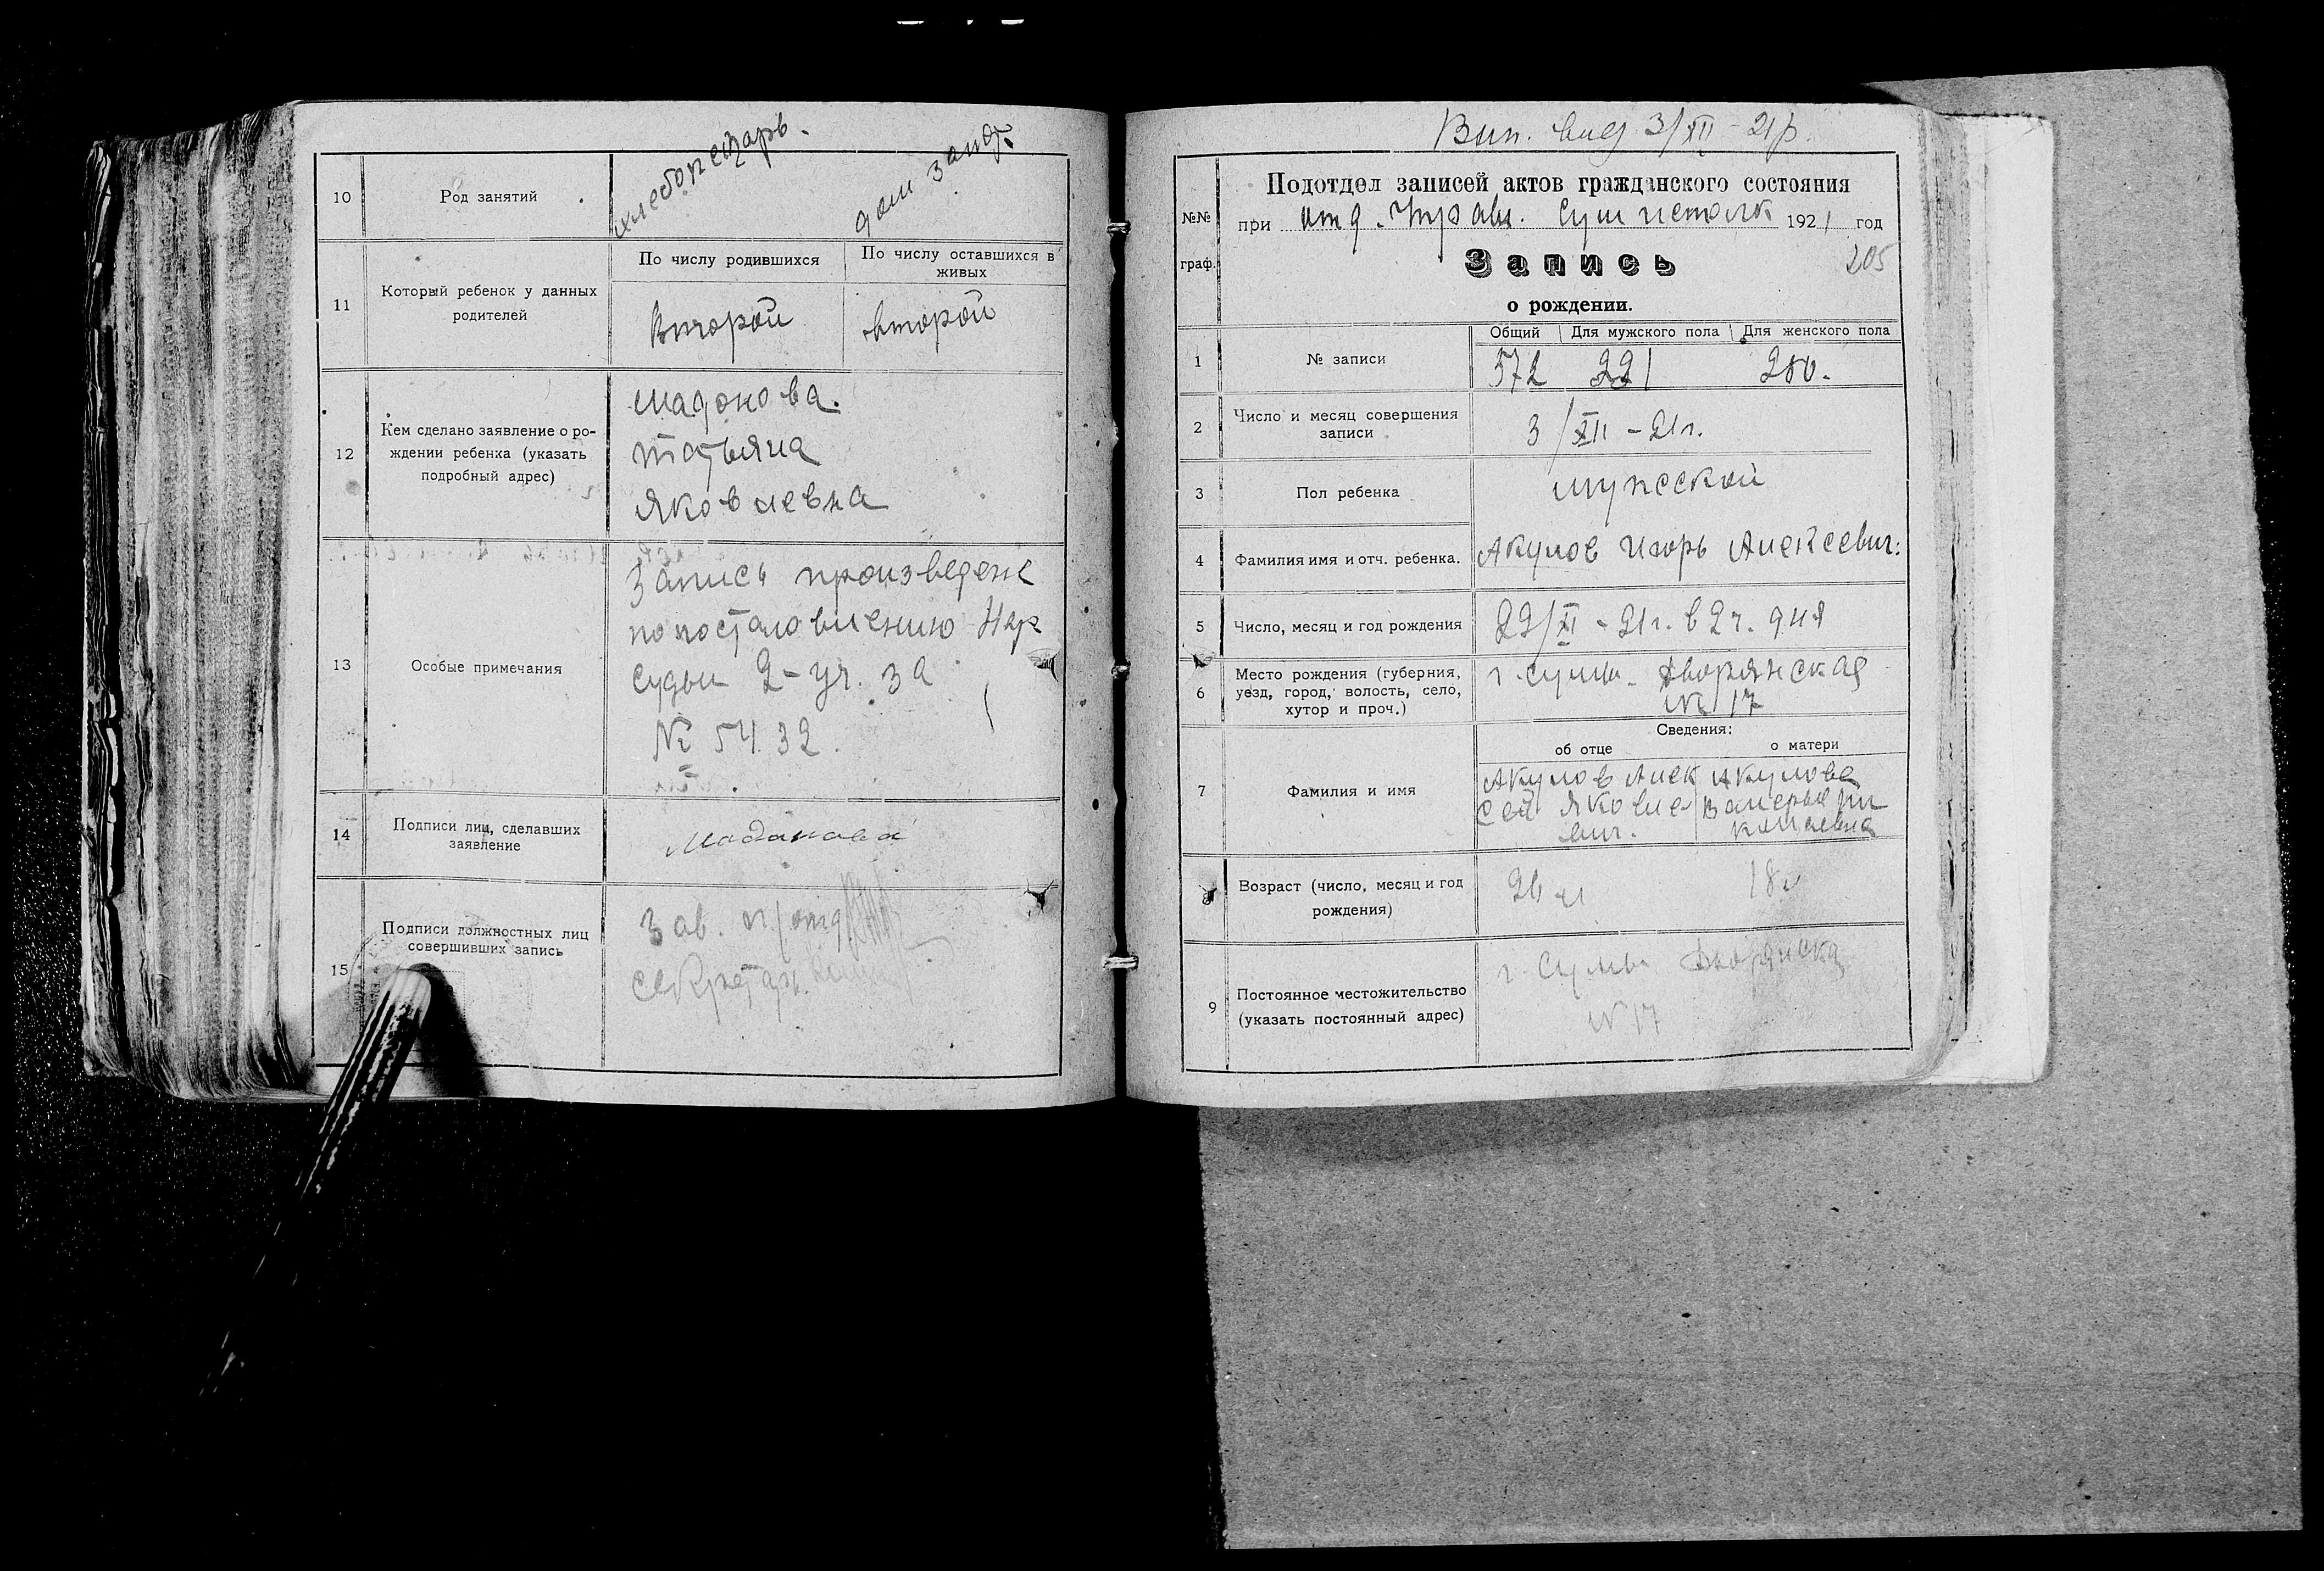 10 Род занятий хлебопекарь. дом. занят.
11 Который ребенок у данных родителей
По числу родившихся По числу оставшихся в живых
Второй второй
12 Кем сделано заявление о ро-
ждении ребенка (указать
подробный адрес)
Мадонова.
Татьяна
Яковлевна
13 Особые примечания
Запись произведене
по постановлению Нар
судьи 2-уч. за
№ 5432.
14 Подписи лиц, сделавших
заявление
Маданава
15 Подписи должностных лиц
совершивших запись
Зав. п/отд
Секретарь
Вип. вид 3/XII-21р.
№№
граф.
Подотдел записей актов гражданского состояния
при отд. Управ. Сум 1921 год
Запись 205
о рождении.
1 № записи
Общий Для мужского пола Для женского пола
572 221 250.
2 Число и месяц совершения
записи
3/XII-21г.
3 Пол ребенка мужской
4 Фамилия имя и отч. ребенка. Акулов Игорь Алексеевич.
5 Число, месяц и год рождения 22/XI-21г. в 2 ч. дня
6 Место рождения (губерния,
уезд, город, волость, село,
хутор и проч.)
г. Сумы. Дворянская
№ 17
Сведения:
об отце о матери
7 Фамилия и имя
Акулов Алек
сей Яковле
вич.
Акулова
Валерья Ни
колаевна
8 Возраст (число, месяц и год
рождения)
26 л 18 л
9 Постоянное местожительство
(указать постоянный адрес)
г. Сумы Дворянска
№ 17